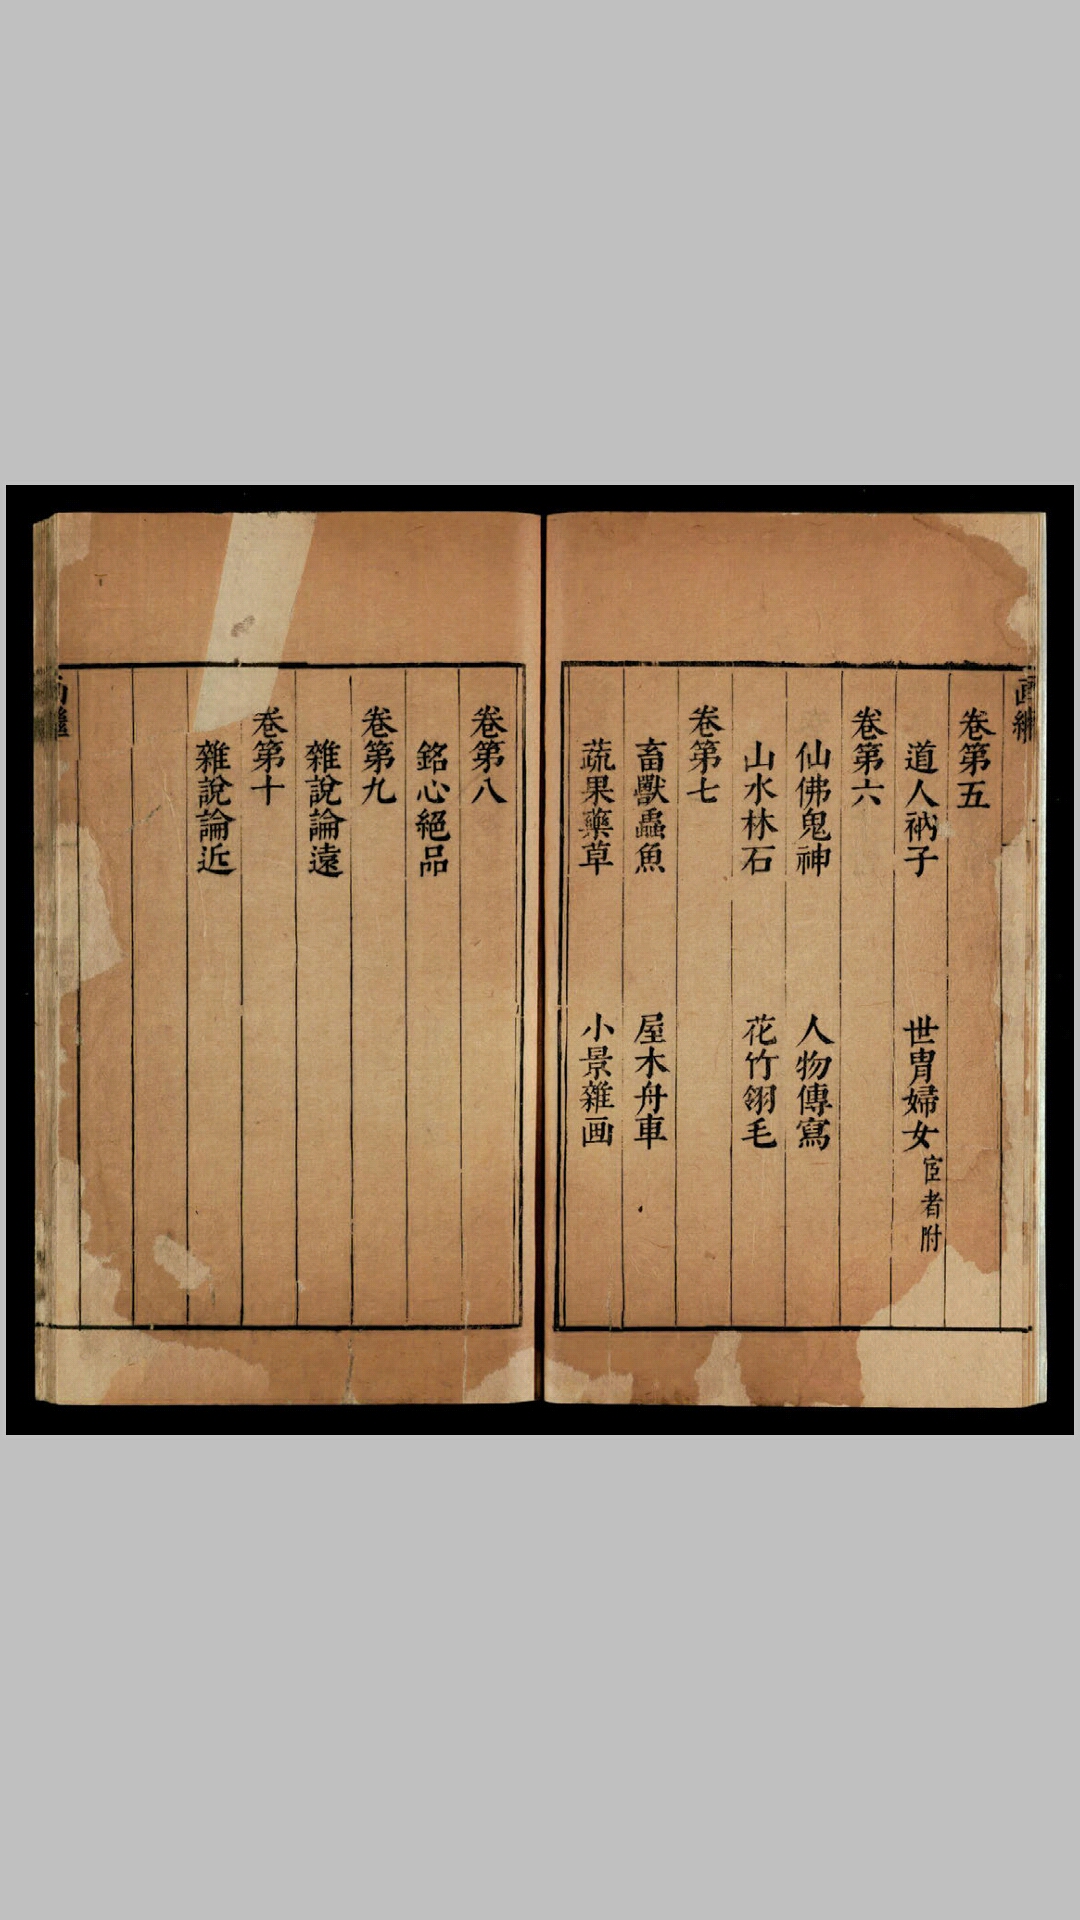 卷第五
道人衲子　世胄婦女宦者附
卷第六
仙佛鬼神　人物傳寫
山水林石　花竹翎毛
卷第七
畜獸蟲魚　屋木舟車
蔬果藥草　小景雜画
卷第八
銘心絕品
卷第九
雜說論遠
卷第十
雜說論近